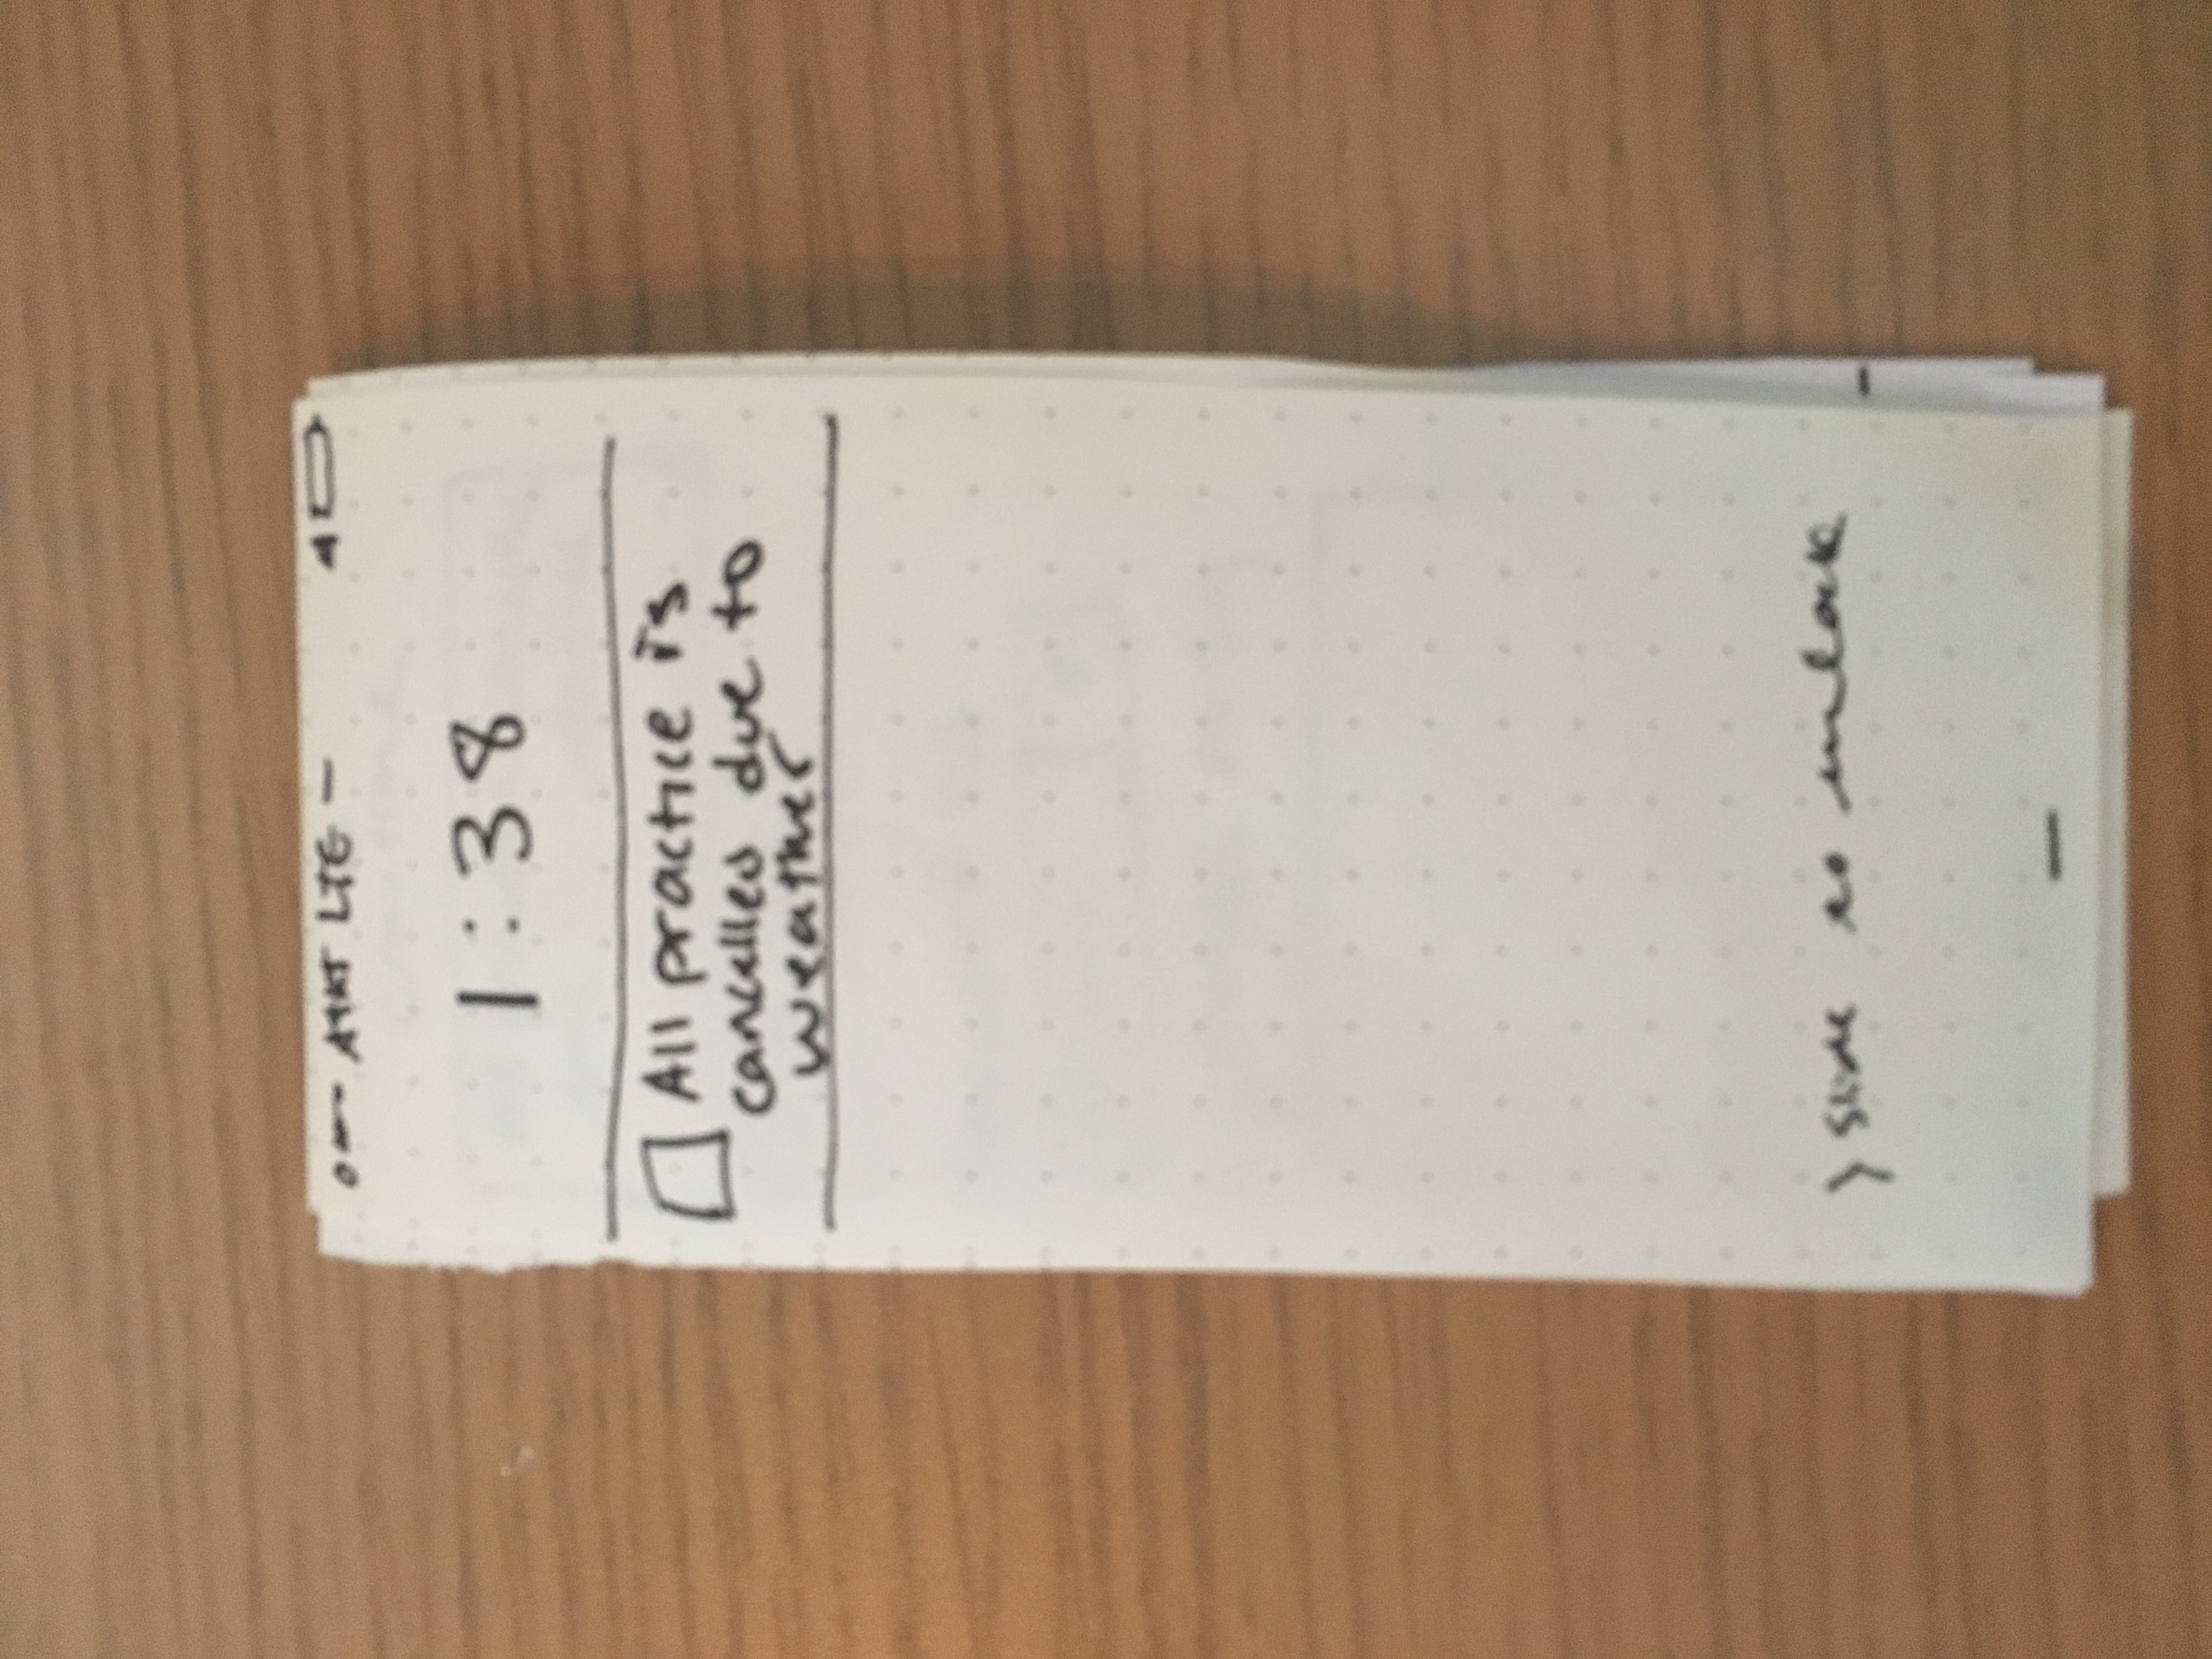 AT&T LTE
1:38
All practice is
cancelled due to
weather
> slide to unlock